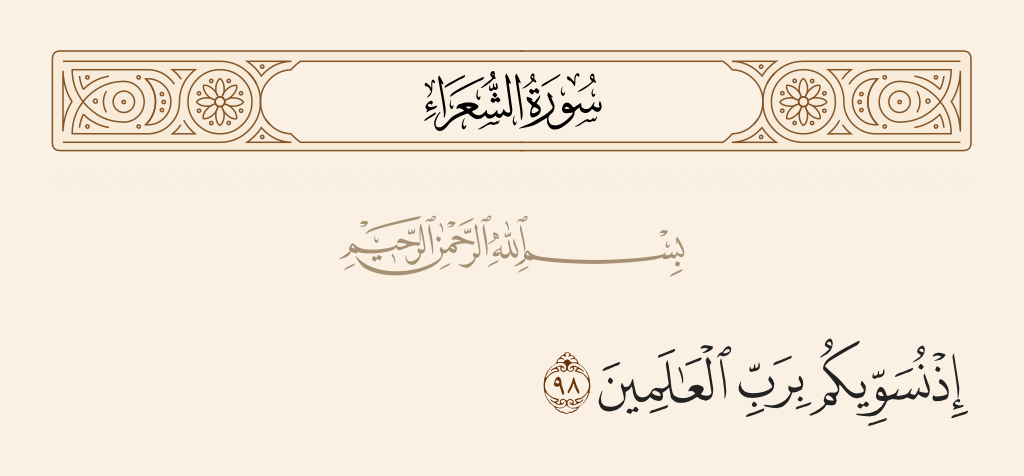 سُورَةُ الشُّعَرَاءِ
بِسْمِ ٱللَّهِ ٱلرَّحْمَٰنِ ٱلرَّحِيمِ
إِذْ نُسَوِّيكُم بِرَبِّ ٱلْعَٰلَمِينَ ٩٨